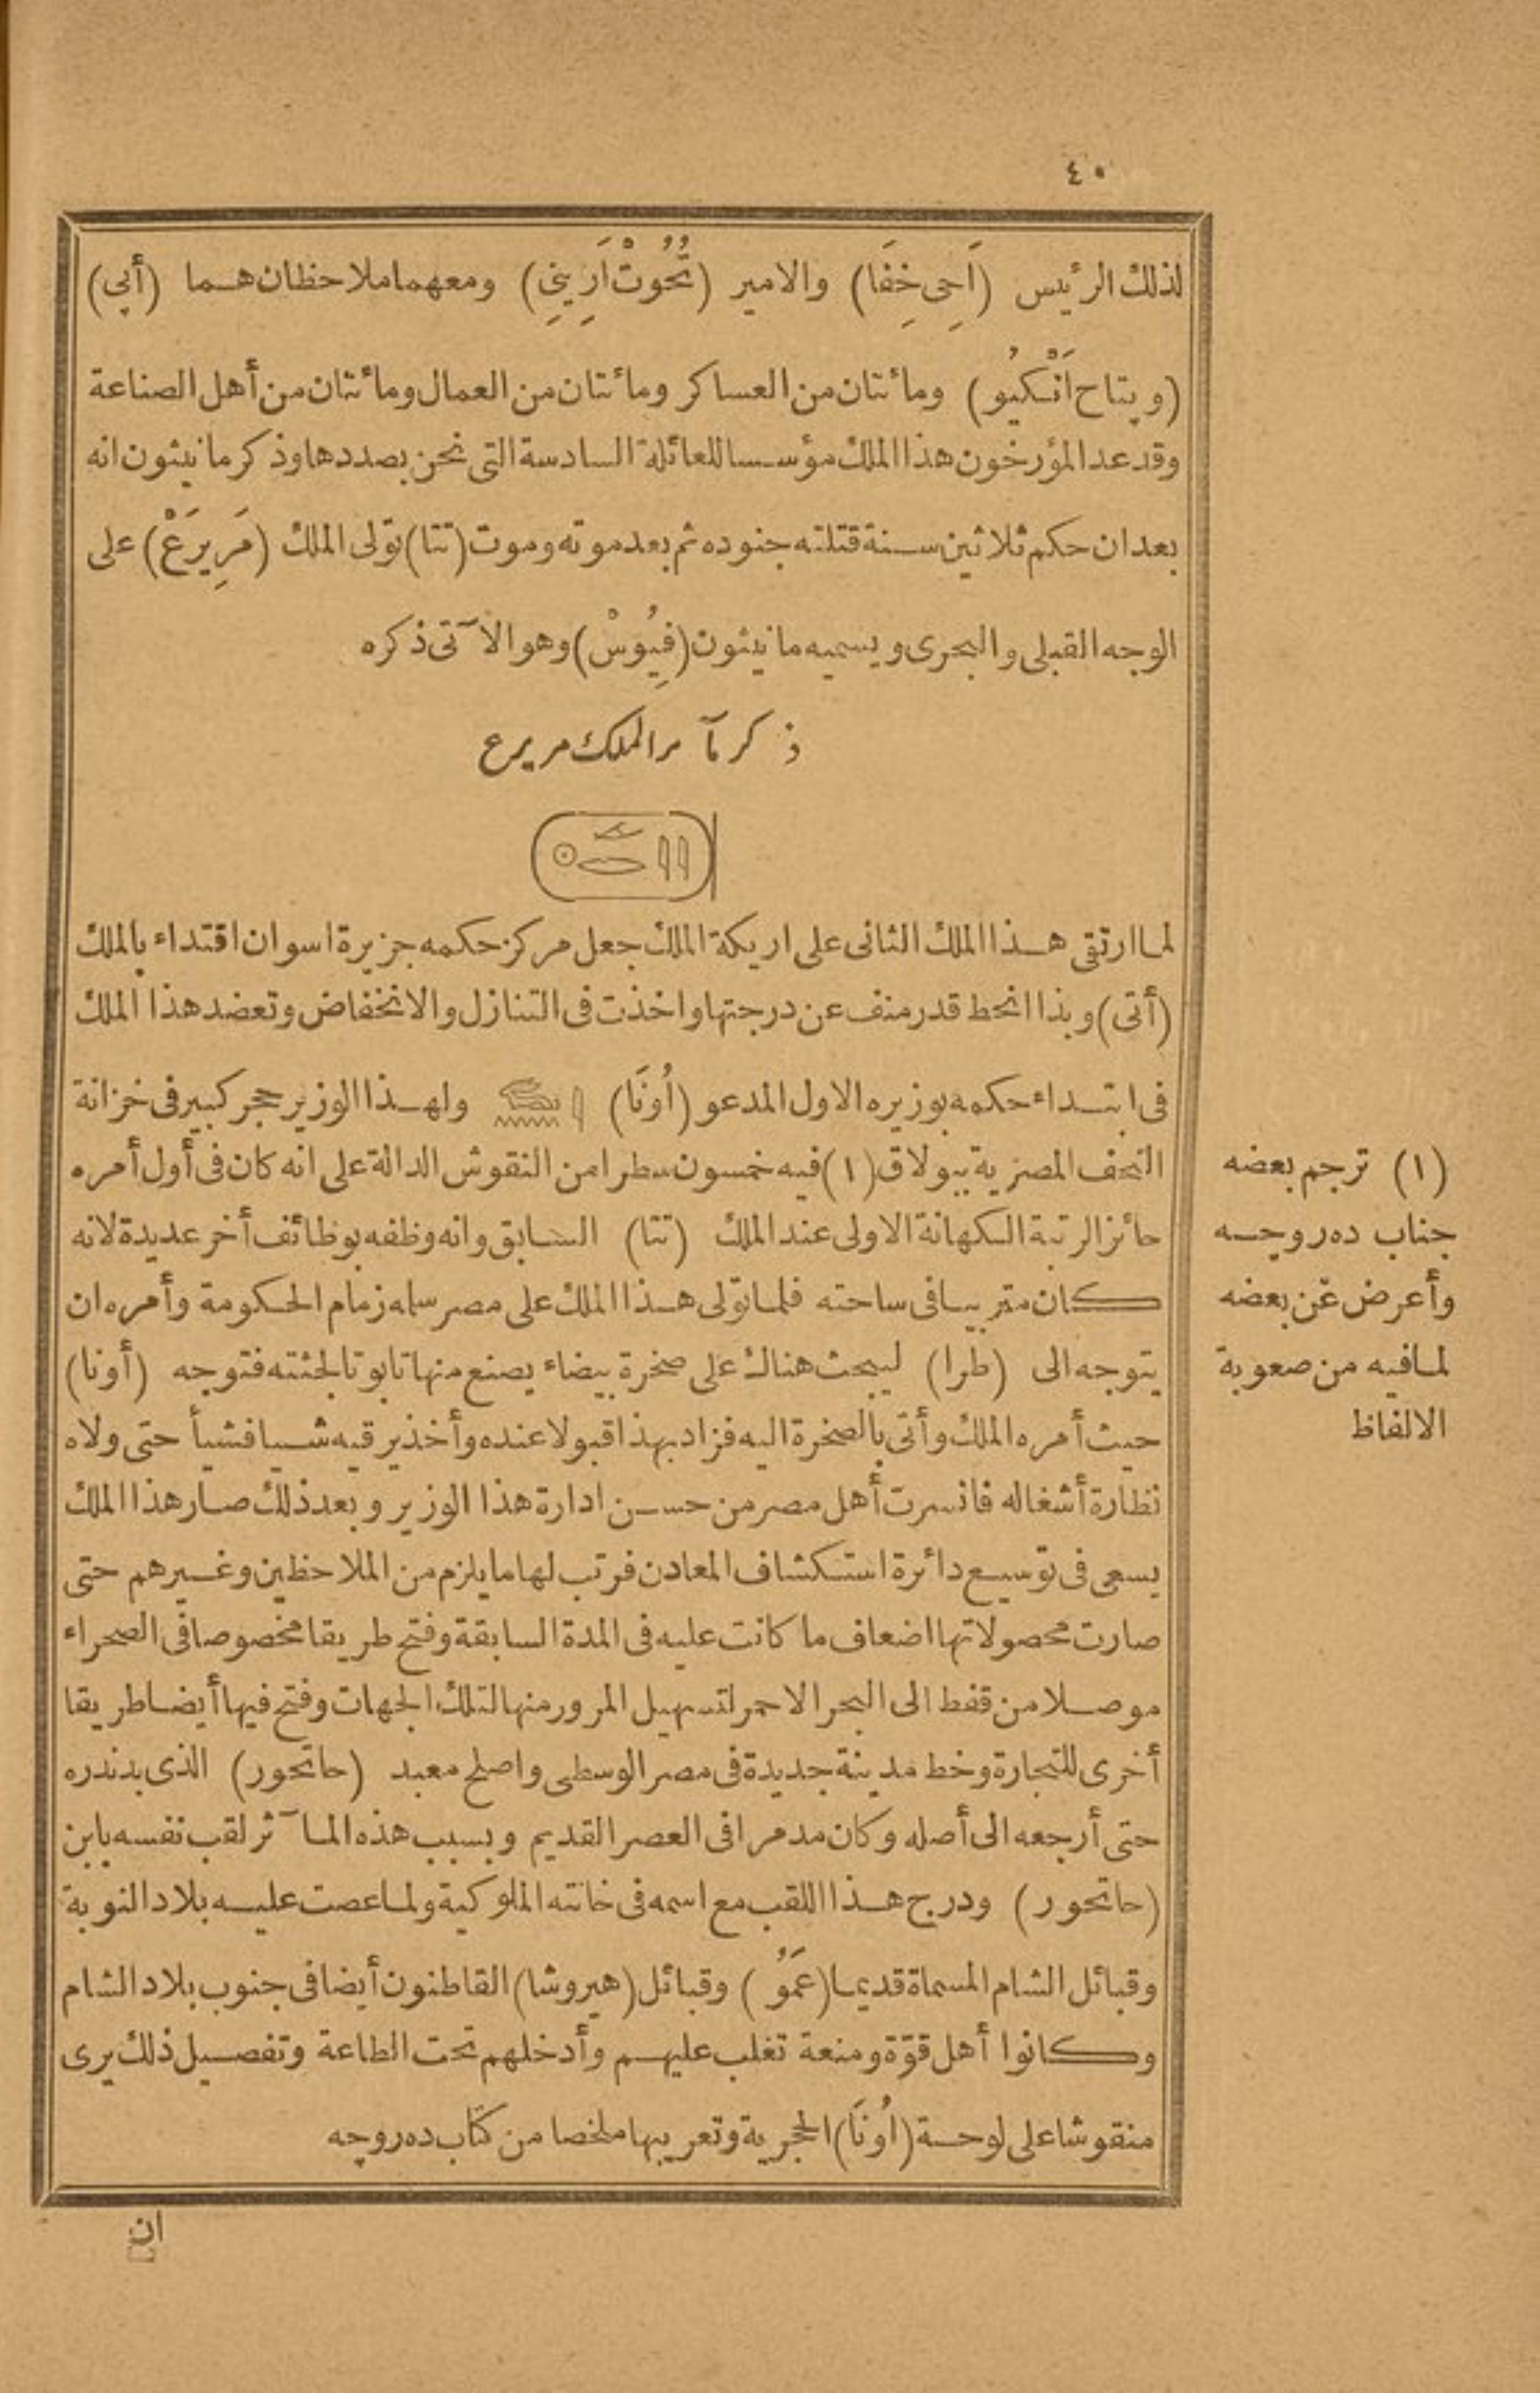 ٤٠
لذلك الرئيس (اَحِى خِفَا) والامير (تُحُوتْ اَرِينِ) ومعهما ملاحظان هما (أبى)
(وپتاح اَنْكيُو) ومائتان من العساكر ومائتان من العمال ومائتان من أهل الصناعة
وقد عد المؤرخون هذا الملك مؤسسا للعائلة السادسة التى نحن بصددها وذكر مانيثون انه
بعد ان حكم ثلاثين سنة قتلته جنوده ثم بعد موته وموت (تتا) تولى الملك (مَرِيرَعْ) على
الوجه القبلى والبحرى ويسميه مانيثون (فِيُوسْ) وهو الآتى ذكره
ذكر مآثر الملك مريرع
لما ارتقى هذا الملك الثانى على اريكة الملك جعل مركز حكمه جزيرة اسوان اقتداء بالملك
(أتى) وبذا انحط قدر منف عن درجتها واخذت فى التنازل والانخفاض وتعضد هذا الملك
فى ابتداء حكمه بوزيره الاول المدعو (اُونَا) ولهذا الوزير حجر كبير فى خزانة
التحف المصرية ببولاق (١) فيه خمسون سطرا من النقوش الدالة على انه كان فى أول أمره
حائزا لرتبة الكهانة الاولى عند الملك (تتا) السابق وانه وظفه بوظائف أخر عديدة لانه
كان متربيا فى ساحته فلما تولى هذا الملك على مصر سلمه زمام الحكومة وأمره ان
يتوجه الى (طرا) ليبحث هناك على صخرة بيضاء يصنع منها تابوتا لجثته فتوجه (أونا)
حيث أمره الملك وأتى بالصخرة اليه فزاد بهذا قبولا عنده وأخذ يرقيه شيا فشيأ حتى ولاه
نظارة أشغاله فانسرت أهل مصر من حسن ادارة هذا الوزير وبعد ذلك صار هذا الملك
يسعى فى توسيع دائرة استكشاف المعادن فرتب لها ما يلزم من الملاحظين وغيرهم حتى
صارت محصولاتها اضعاف ما كانت عليه فى المدة السابقة وفتح طريقا مخصوصا فى الصحراء
موصلا من قفط الى البحر الاحمر لتسهيل المرور منها لتلك الجهات وفتح فيها أيضا طريقا
أخرى للتجارة وخط مدينة جديدة فى مصر الوسطى واصلح معبد (حاتحور) الذى بدندره
حتى أرجعه الى أصله وكان مدمرا فى العصر القديم وبسبب هذه المآثر لقب نفسه بابن
(حاتحور) ودرج هذا اللقب مع اسمه فى خانته الملوكية ولما عصت عليه بلاد النوبة
وقبائل الشام المسماة قديما (عَمَوُ) وقبائل (هيروشا) القاطنون أيضا فى جنوب بلاد الشام
وكانوا أهل قوّة ومنعة تغلب عليهم وأدخلهم تحت الطاعة وتفصيل ذلك يرى
منقوشا على لوحة (اُونَا) الحجرية وتعريبها ملخصا من كتاب ده روچه
ان
(١) ترجم بعضه
جناب ده روچه
وأعرض عن بعضه
لما فيه من صعوبة
الالفاظ